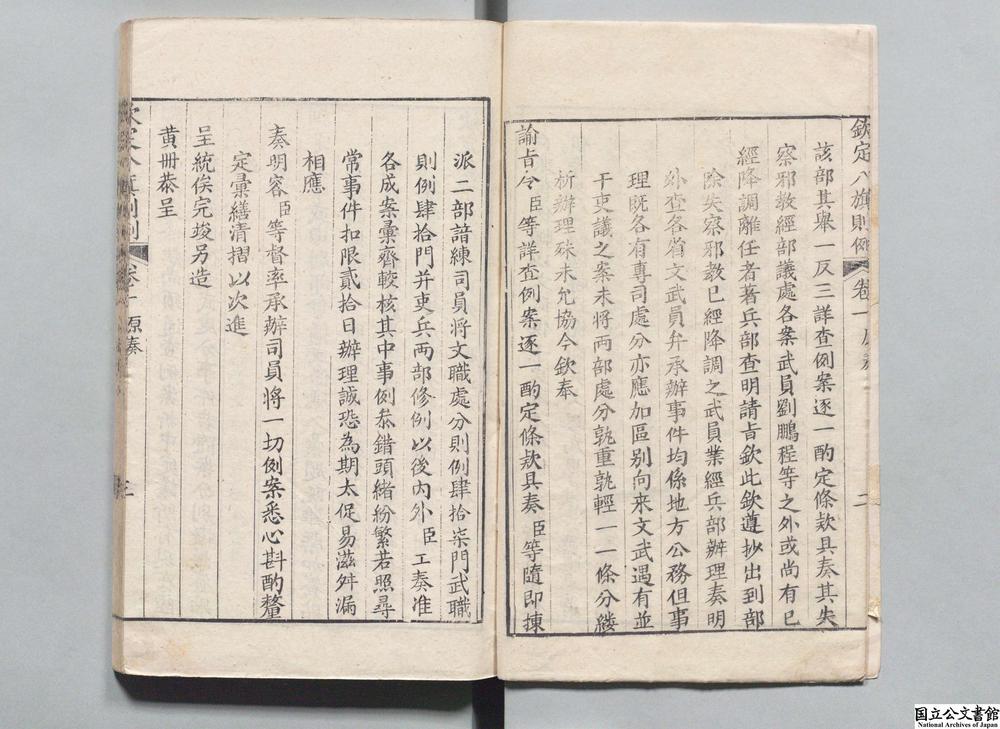 欽定八旗則例 卷一 原奏 二
該部其舉一反三詳查例案逐一酌定條欵具奏其失
察邪教經部議處各案武員劉鵬程等之外或尚有已
經降調離任者著兵部查明請旨欽此欽遵抄出到部
除失察邪教已經降調之武員業經兵部辦理奏明
外查各省文武員弁承辦事件均係地方公務但事
理既各有專司處分亦應加區别向来文武遇有並
干吏議之案未將兩部處分孰重孰輕一一條分縷
析辦理殊未允協今欽奉
諭旨令臣等詳查例案逐一酌定條欵具奏臣等隨即揀
派二部諳練司員將文職處分則例肆拾柒門武職
則例肆拾門并吏兵兩部修例以後內外臣工奏准
各成案彙齊較核其中事例叅錯頭緒紛繁若照尋
常事件扣限貳拾日辦理誠恐為期太促易滋舛漏
相應
奏明容臣等督率承辦司員將一切例案悉心斟酌釐
定彙繕清摺以次進
呈統俟完竣另造
黄冊恭呈
欽定八旗則例 卷一 原奏 三
国立公文書館
National Archives of Japan